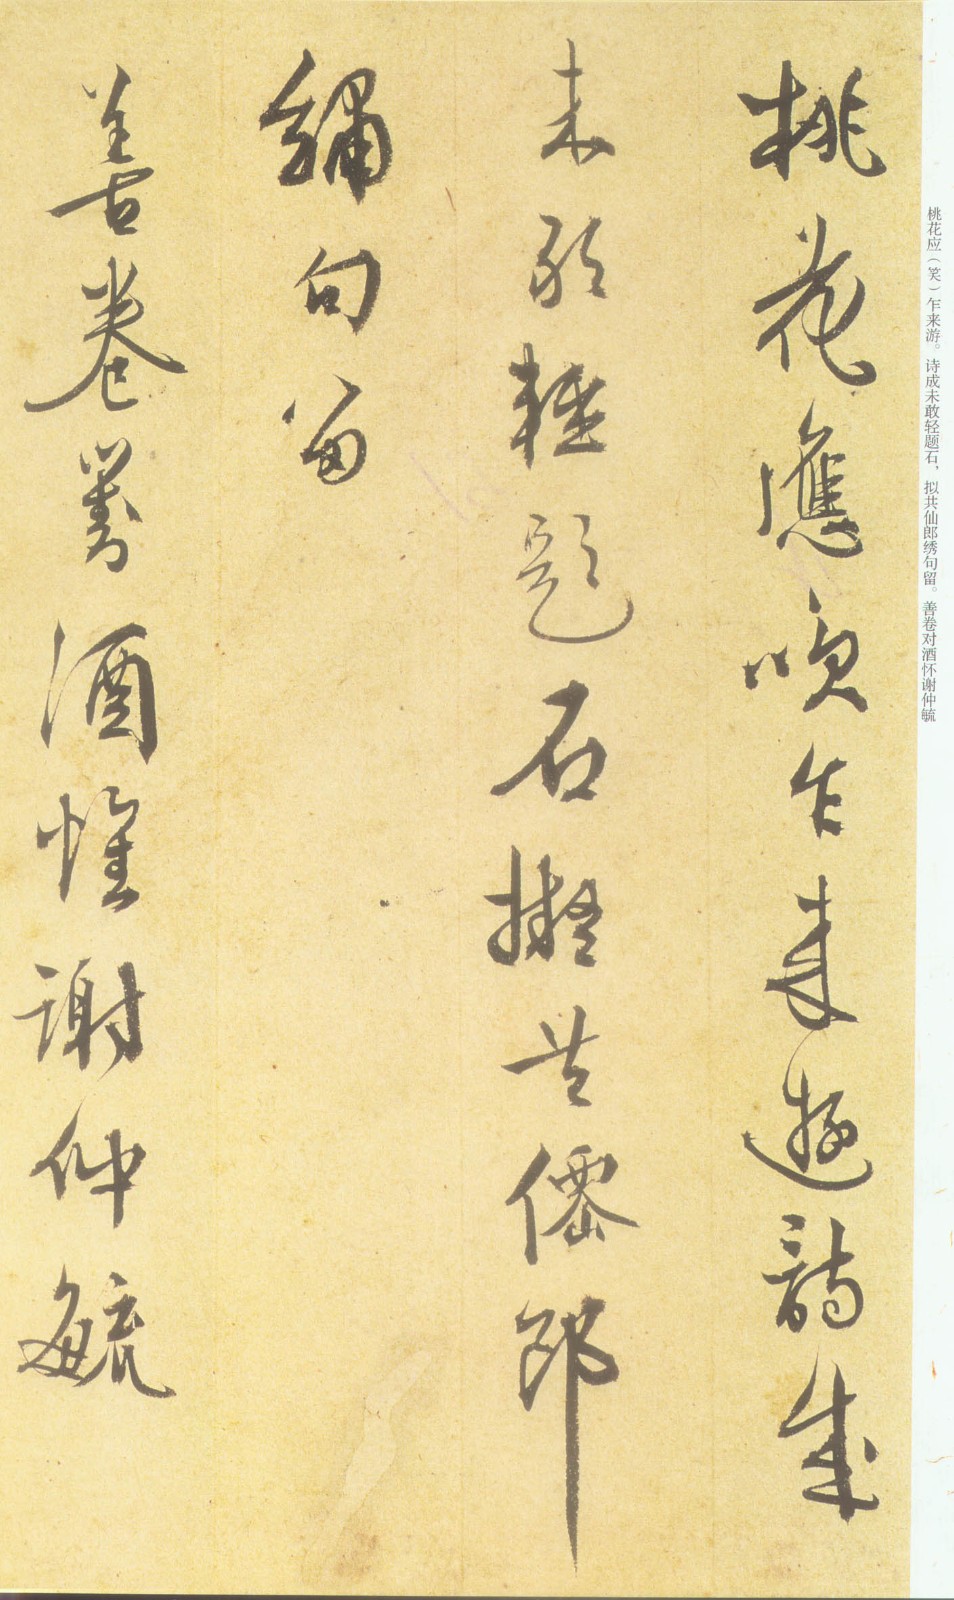 桃花应（笑）乍来游。诗成未敢轻题石，拟共仙郎绣句留。善卷对酒怀谢仲毓
桃花應咲乍來遊詩成
未敢輕題石擬共僊郎
繡句留
善卷對酒懷謝仲毓